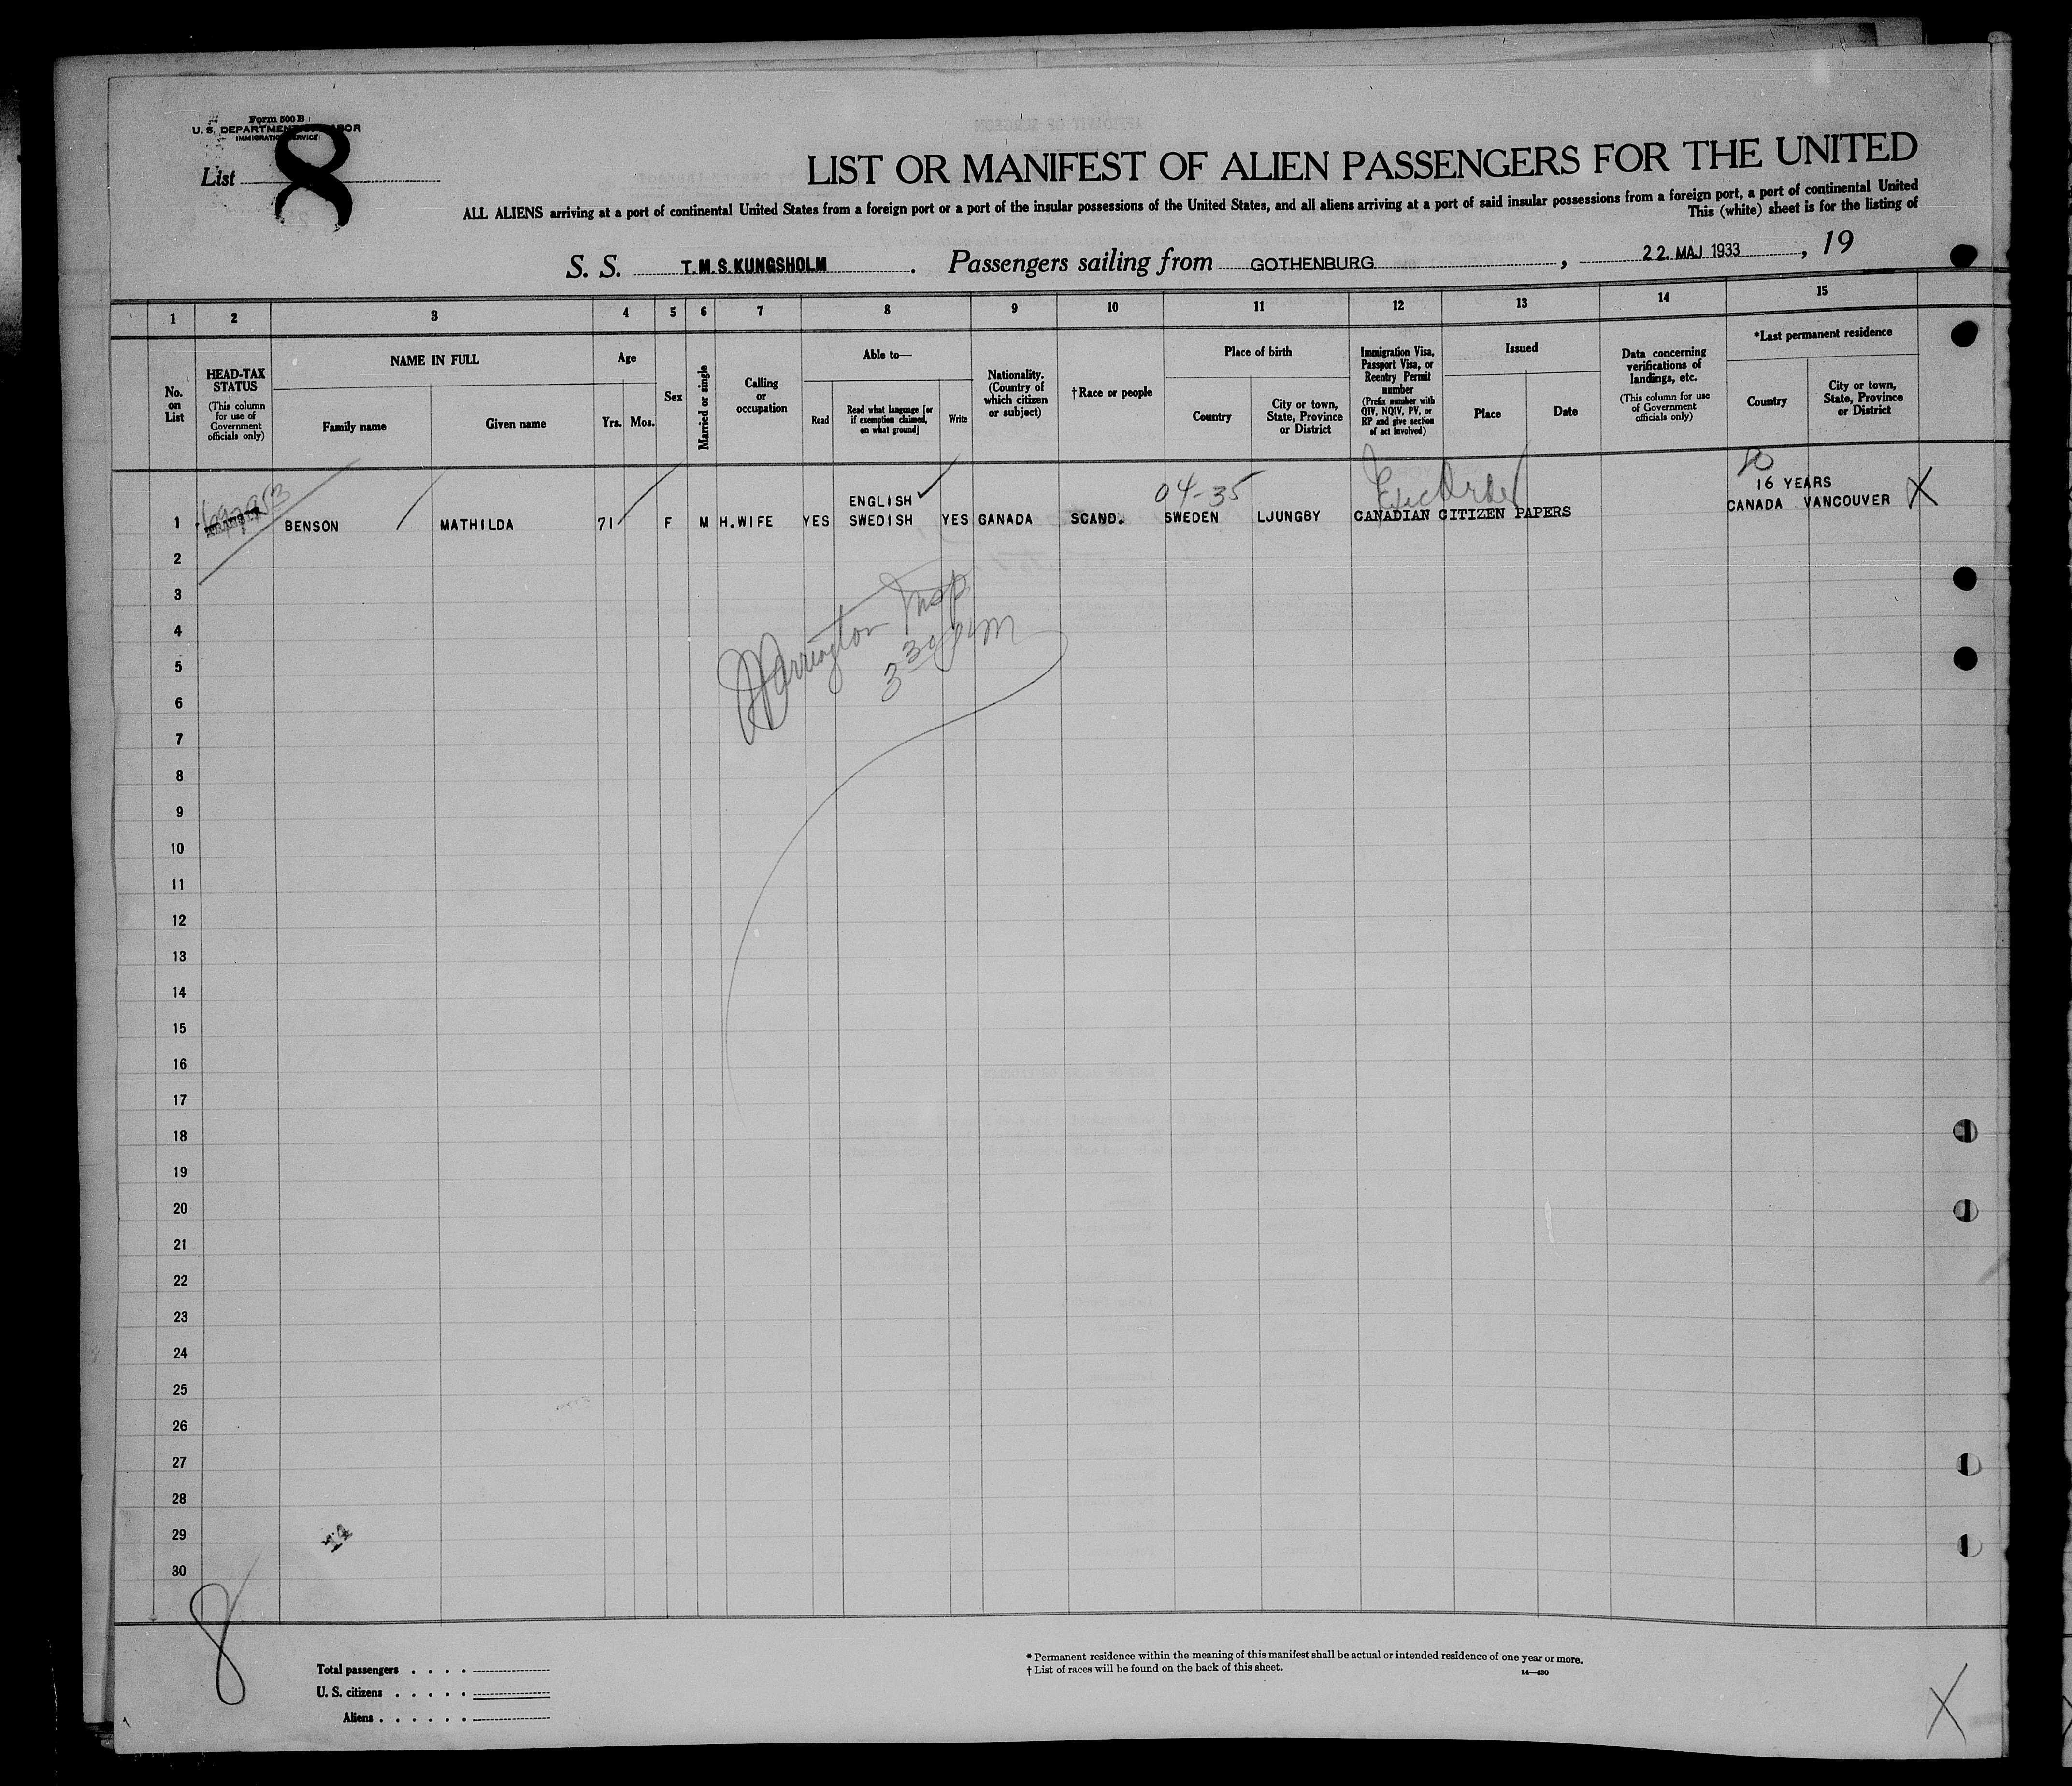 Form 500 B
U. S. DEPARTMENT OF LABOR
IMMIGRATION SERVICE
List 8
LIST OR MANIFEST OF ALIEN PASSENGERS FOR THE UNITED
ALL ALIENS arriving at a port of continental United States from a foreign port or a port of the insular possessions of the United States, and all aliens arriving at a port of said insular possessions from a foreign port, a port of continental United
This (white) sheet is for the listing of
S. S. T.M.S. KUNGSHOLM. Passengers sailing from GOTHENBURG, 22. MAJ 1933, 19
1 2 3 4 5 6 7 8 9 10 11 12 13 14 15
No. on List
HEAD-TAX STATUS
(This column for use of Government officials only)
NAME IN FULL
Family name
Given name
Age
Yrs. Mos.
Sex
Married or single
Calling or occupation
Able to—
Read
Read what language [or if exemption claimed, on what ground]
Write
Nationality. (Country of which citizen or subject)
†Race or people
Place of birth
Country
City or town, State, Province or District
Immigration Visa, Passport Visa, or Reentry Permit number
(Prefix number with QIV, NQIV, PV, or RP and give section of act involved)
Issued
Place
Date
Data concerning verifications of landings, etc.
(This column for use of Government officials only)
*Last permanent residence
Country
City or town, State, Province or District
04-35
ENGLISH
16 YEARS
1 BENSON MATHILDA 71 F M H.WIFE YES SWEDISH YES CANADA SCAND. SWEDEN LJUNGBY CANADIAN CITIZEN PAPERS CANADA VANCOUVER X
2
3
Harrington Insp
4
3 30 PM
5
6
7
8
9
10
11
12
13
14
15
16
17
18
19
20
21
22
23
24
25
26
27
28
29
30
8
Total passengers
U. S. citizens
Aliens
* Permanent residence within the meaning of this manifest shall be actual or intended residence of one year or more.
† List of races will be found on the back of this sheet.
14—430
X